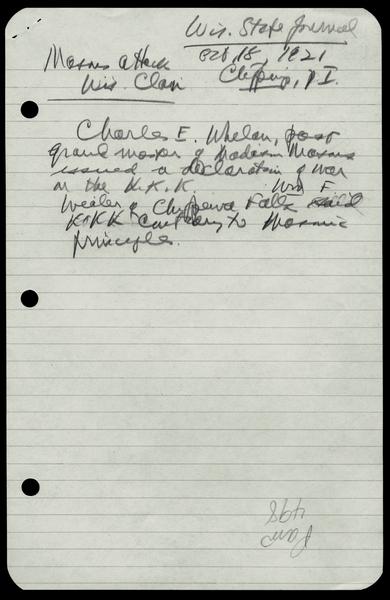 Wis. State Journal
Oct 18, 1921
Masons attack
Clipping, P I.
Wis. Clan
Charles E. Whelan, past
grand master of Madison Masons
issued a declaration of war
on the K.K.K. Wm F.
Weiler of Chippewa Falls said
KKK contrary to Masonic
principles.
498